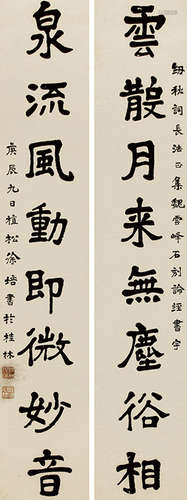 紉秋詞長法正集魏雲峰石刻論經書字
雲散月来無塵俗相
泉流風動即微妙音
庚辰九日植松徐培書於桂林